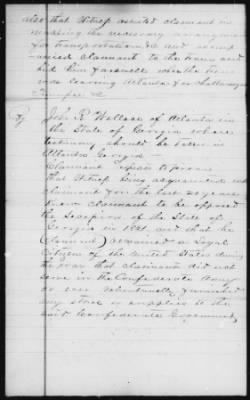 also that Witness assisted claimant in
making the necessary arrangements
for transportation &c and accomp-
-anied claimant to the train and
bid him farewell when the train
was leaving Atlanta for Chattanooga
Tennessee
John R. Wallace of Atlanta in
the State of Georgia whose
testimony should be taken in
Atlanta Georgia
Claimant to prove
that Witness being acquainted with
claimant for the last 20 years
knew claimant to be opposed
the Secession of the State of
Georgia in 1861. and that he
(Claimant) remained a Loyal
Citizen of the United States during
the war that claimant did not
serve in the Confederate Army
or ever voluntarily furnished
any stores or supplies to the
said Confederate Government,